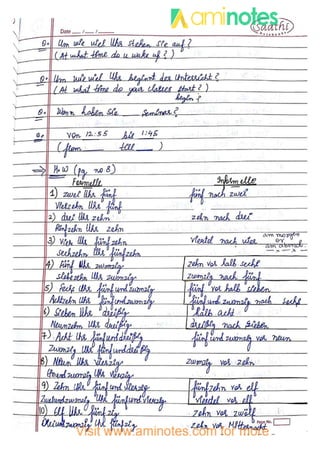 aminotes
Saathi
Date ___/___/___
Q. Um wie viel Uhr stehen Sie auf?
(At what time do u wake up?)
Q. Um wie viel Uhr beginnt der Unterricht?
(At what time do your classes start?)
begin?
Q. Wann haben Sie ___ Seminar?
Q. Von 12:55 bis 1:45
(from ___ till ___)
=> H.W (pg. no 8)
Formelle Informelle
1) zwei Uhr fünf fünf nach zwei
Vierzehn Uhr fünf
2) drei Uhr zehn zehn nach drei
Fünfzehn Uhr zehn
am morgen
or
am abend
3) Vier Uhr fünfzehn Viertel nach vier
sechzehn Uhr fünfzehn
4) Fünf Uhr zwanzig zehn vor halb sechs
siebzehn Uhr zwanzig zwanzig nach fünf
5) Sechs Uhr fünfundzwanzig fünf vor halb sieben
Achtzehn Uhr fünfundzwanzig fünfundzwanzig nach sechs
6) Sieben Uhr dreißig halb acht
Neunzehn Uhr dreißig dreißig nach sieben
7) Acht Uhr fünfunddreißig fünfundzwanzig vor neun
Zwanzig Uhr fünfunddreißig
8) Neun Uhr vierzig zwanzig vor zehn
Einundzwanzig Uhr vierzig
9) Zehn Uhr fünfundvierzig fünfzehn vor elf
Zweiundzwanzig Uhr fünfundvierzig viertel vor elf
10) Elf Uhr fünfzig zehn vor zwölf
Dreiundzwanzig Uhr fünfzig zehn vor Mitternacht
Visit www.aminotes.com for more